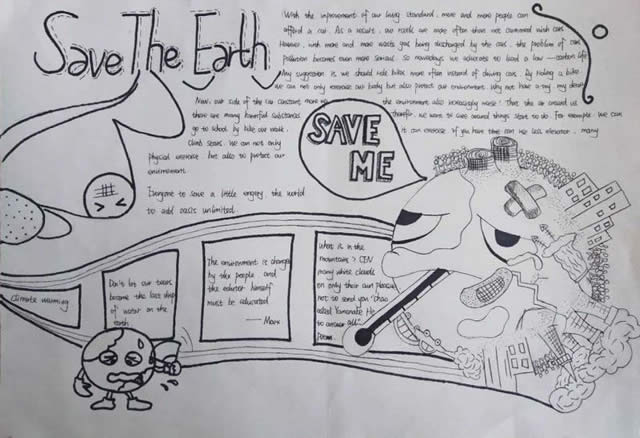 Save The Earth
With the improvement of our living standard, more and more people can
afford a car. As a result, our roads are more often than not crammed with cars
However, with more and more waste gas being discharged by the cars, the problem of
pollution becomes even more serious. So nowadays we advocate to lead a low carbon life
My suggestion is we should ride bikes more often instead of driving cars. By riding a bike
we can not only exercise our body but also protect our environment. Why not have a try
Now, our side of the car constant more up the environment also increasingly worse! That the air around us
there are many harmful substances therefor, we want to use around things start to do. For example: We can
go to school by bike our work. it can exercise if you have time can we less elevator, many
climb stairs. We can not only
physical exercise, but also to protect our
environment
Everyone to save a little engery, the world
to add oasis unlimited.
SAVE
ME
Climate warming
Don't let our tears
become the last drop
of water on the
earth
The environment is changed
by the people and
the educator himself
must be educated
— Marx
What is in the
mountains?
many white clouds
on only their own
not to send you "Zhao
to answer
Poem